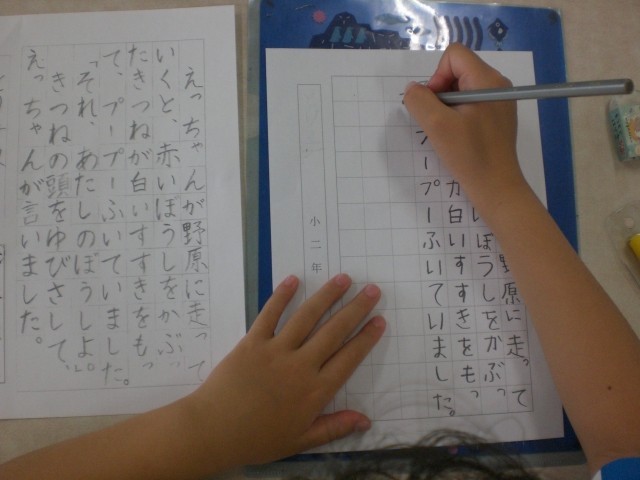 えっちゃんが野原に走って
いくと、赤いぼうしをかぶっ
たきつねが白いすすきをもっ
て、プープーふいていました。
「それ、あたしのぼうしよ。」
きつねの頭をゆびさして、
えっちゃんが言いました。
野原に走って
いぼうしをかぶっ
が白いすすきをもっ
プープーふいていました。
小二年